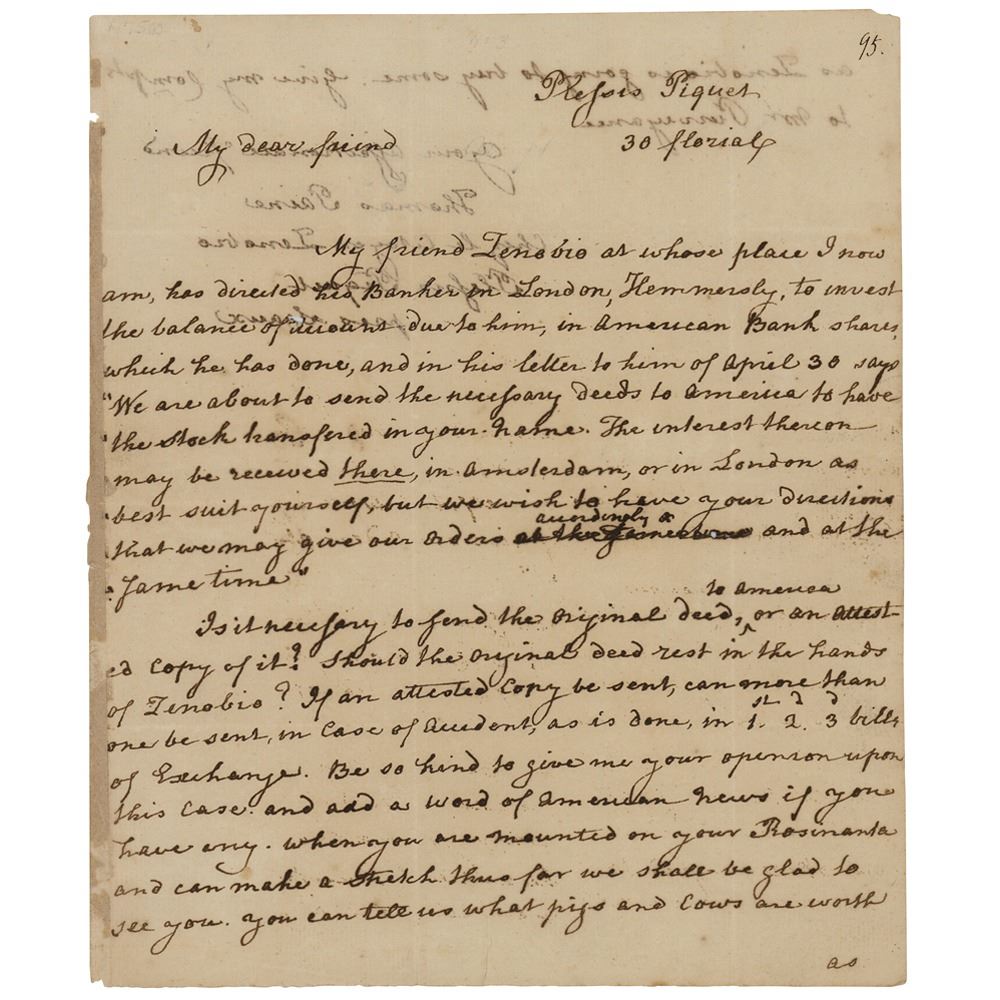 95.
Plessis Piquet
My dear friend
30 florial
My friend Zenobio at whose place I now
am, has directed his Banker in London, Hemmersly, to invest
the balance of account due to him, in American Bank shares,
which he has done, and in his letter to him of April 30 says
"We are about to send the necessary deeds to America to have
"the Stock transfered in your name. The interest thereon
may be received there, in Amsterdam, or in London as
"best suit yourself, but we wish to have your directions
accordingly
"that we may give our orders at the same time and at the
"same time"
to America
Is it necessary to send the original deed, or an attest-
ed Copy of it? Should the original deed rest in the hands
of Zenobio? If an attested Copy be sent, can more than
one be sent, in Case of accident, as is done, in 1.st 2.d 3d bills
of Exchange. Be so kind to give me your openion upon
this Case and add a word of American News if you
have any. When you are mounted on your Rosinanta
and can make a stretch thus far we shall be glad to
see you. You can tell us what pigs and Cows are worth
as
as Zenobio is going to buy some. Give my Compts
to Mr
Thomas Paine
Zenobio